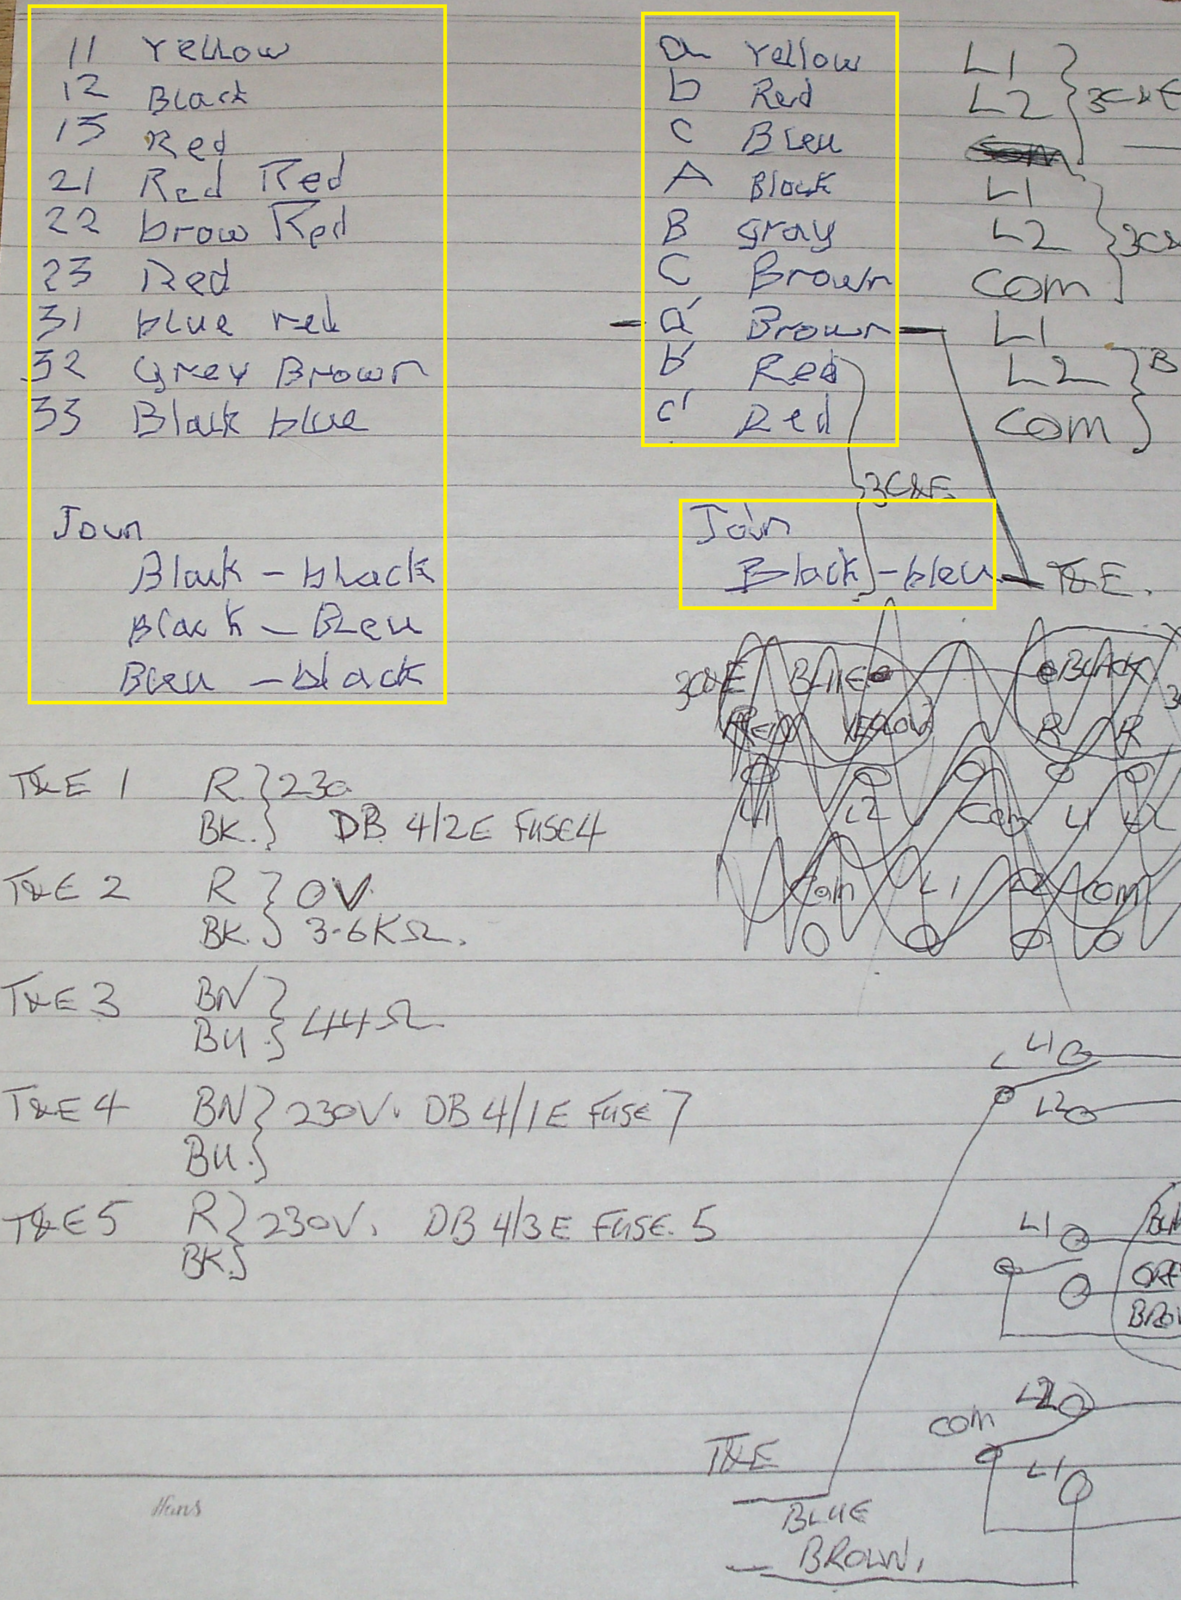 11 Yellow
12 Black
13 Red
21 Red Red
22 brow Red
23 Red
31 blue red
32 Grey Brown
33 Black blue
Join
Black - black
Black - Bleu
Bleu - black
a Yellow L1
b Red L2 3C&E
c Bleu
A Black L1
B gray L2 3C&
C Brown Com
a' Brown L1
b' Red L2 B
c' Red Com
3C&E
Join
Black - bleu T&E.
3C&E BLUE BLACK 3
RED YELLOW R R
L1 L2 Com L1 L2
Com L1 L2 Com
T&E 1 R 230
BK. DB 4/2E FUSE 4
T&E 2 R 0V
BK. 3.6KΩ.
T&E 3 BN
BU. 44Ω
T&E 4 BN 230V. DB 4/1E FUSE 7
BU.
T&E 5 R 230V. DB 4/3E FUSE. 5
BK
L1
L2
L1
GRE
BROW
L2
com
L1
T&E
BLUE
BROWN.
Hans